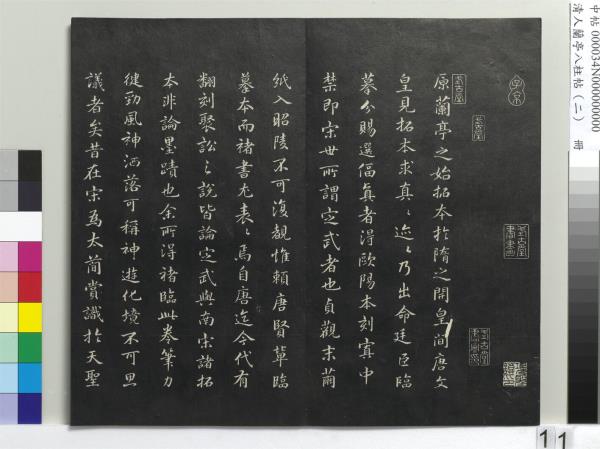 中帖 000034N000000000
清人蘭亭八柱帖(二) 冊
原蘭亭之始拓本於隋之開皇間唐文
皇見拓本求真〻迹〻乃出命廷臣臨
摹分賜選偪真者得歐陽本刻寘中
禁即宋世所謂定武者也貞觀末繭
紙入昭陵不可復覩惟賴唐賢草臨
摹本而褚書尤表〻焉自唐迄今代有
翻刻聚訟之說皆論定武與南宋諸拓
本非論墨蹟也余所得褚臨此卷筆力
健勁風神洒落可稱神遊化境不可思
議者矣昔在宋為太簡賞識於天聖
11